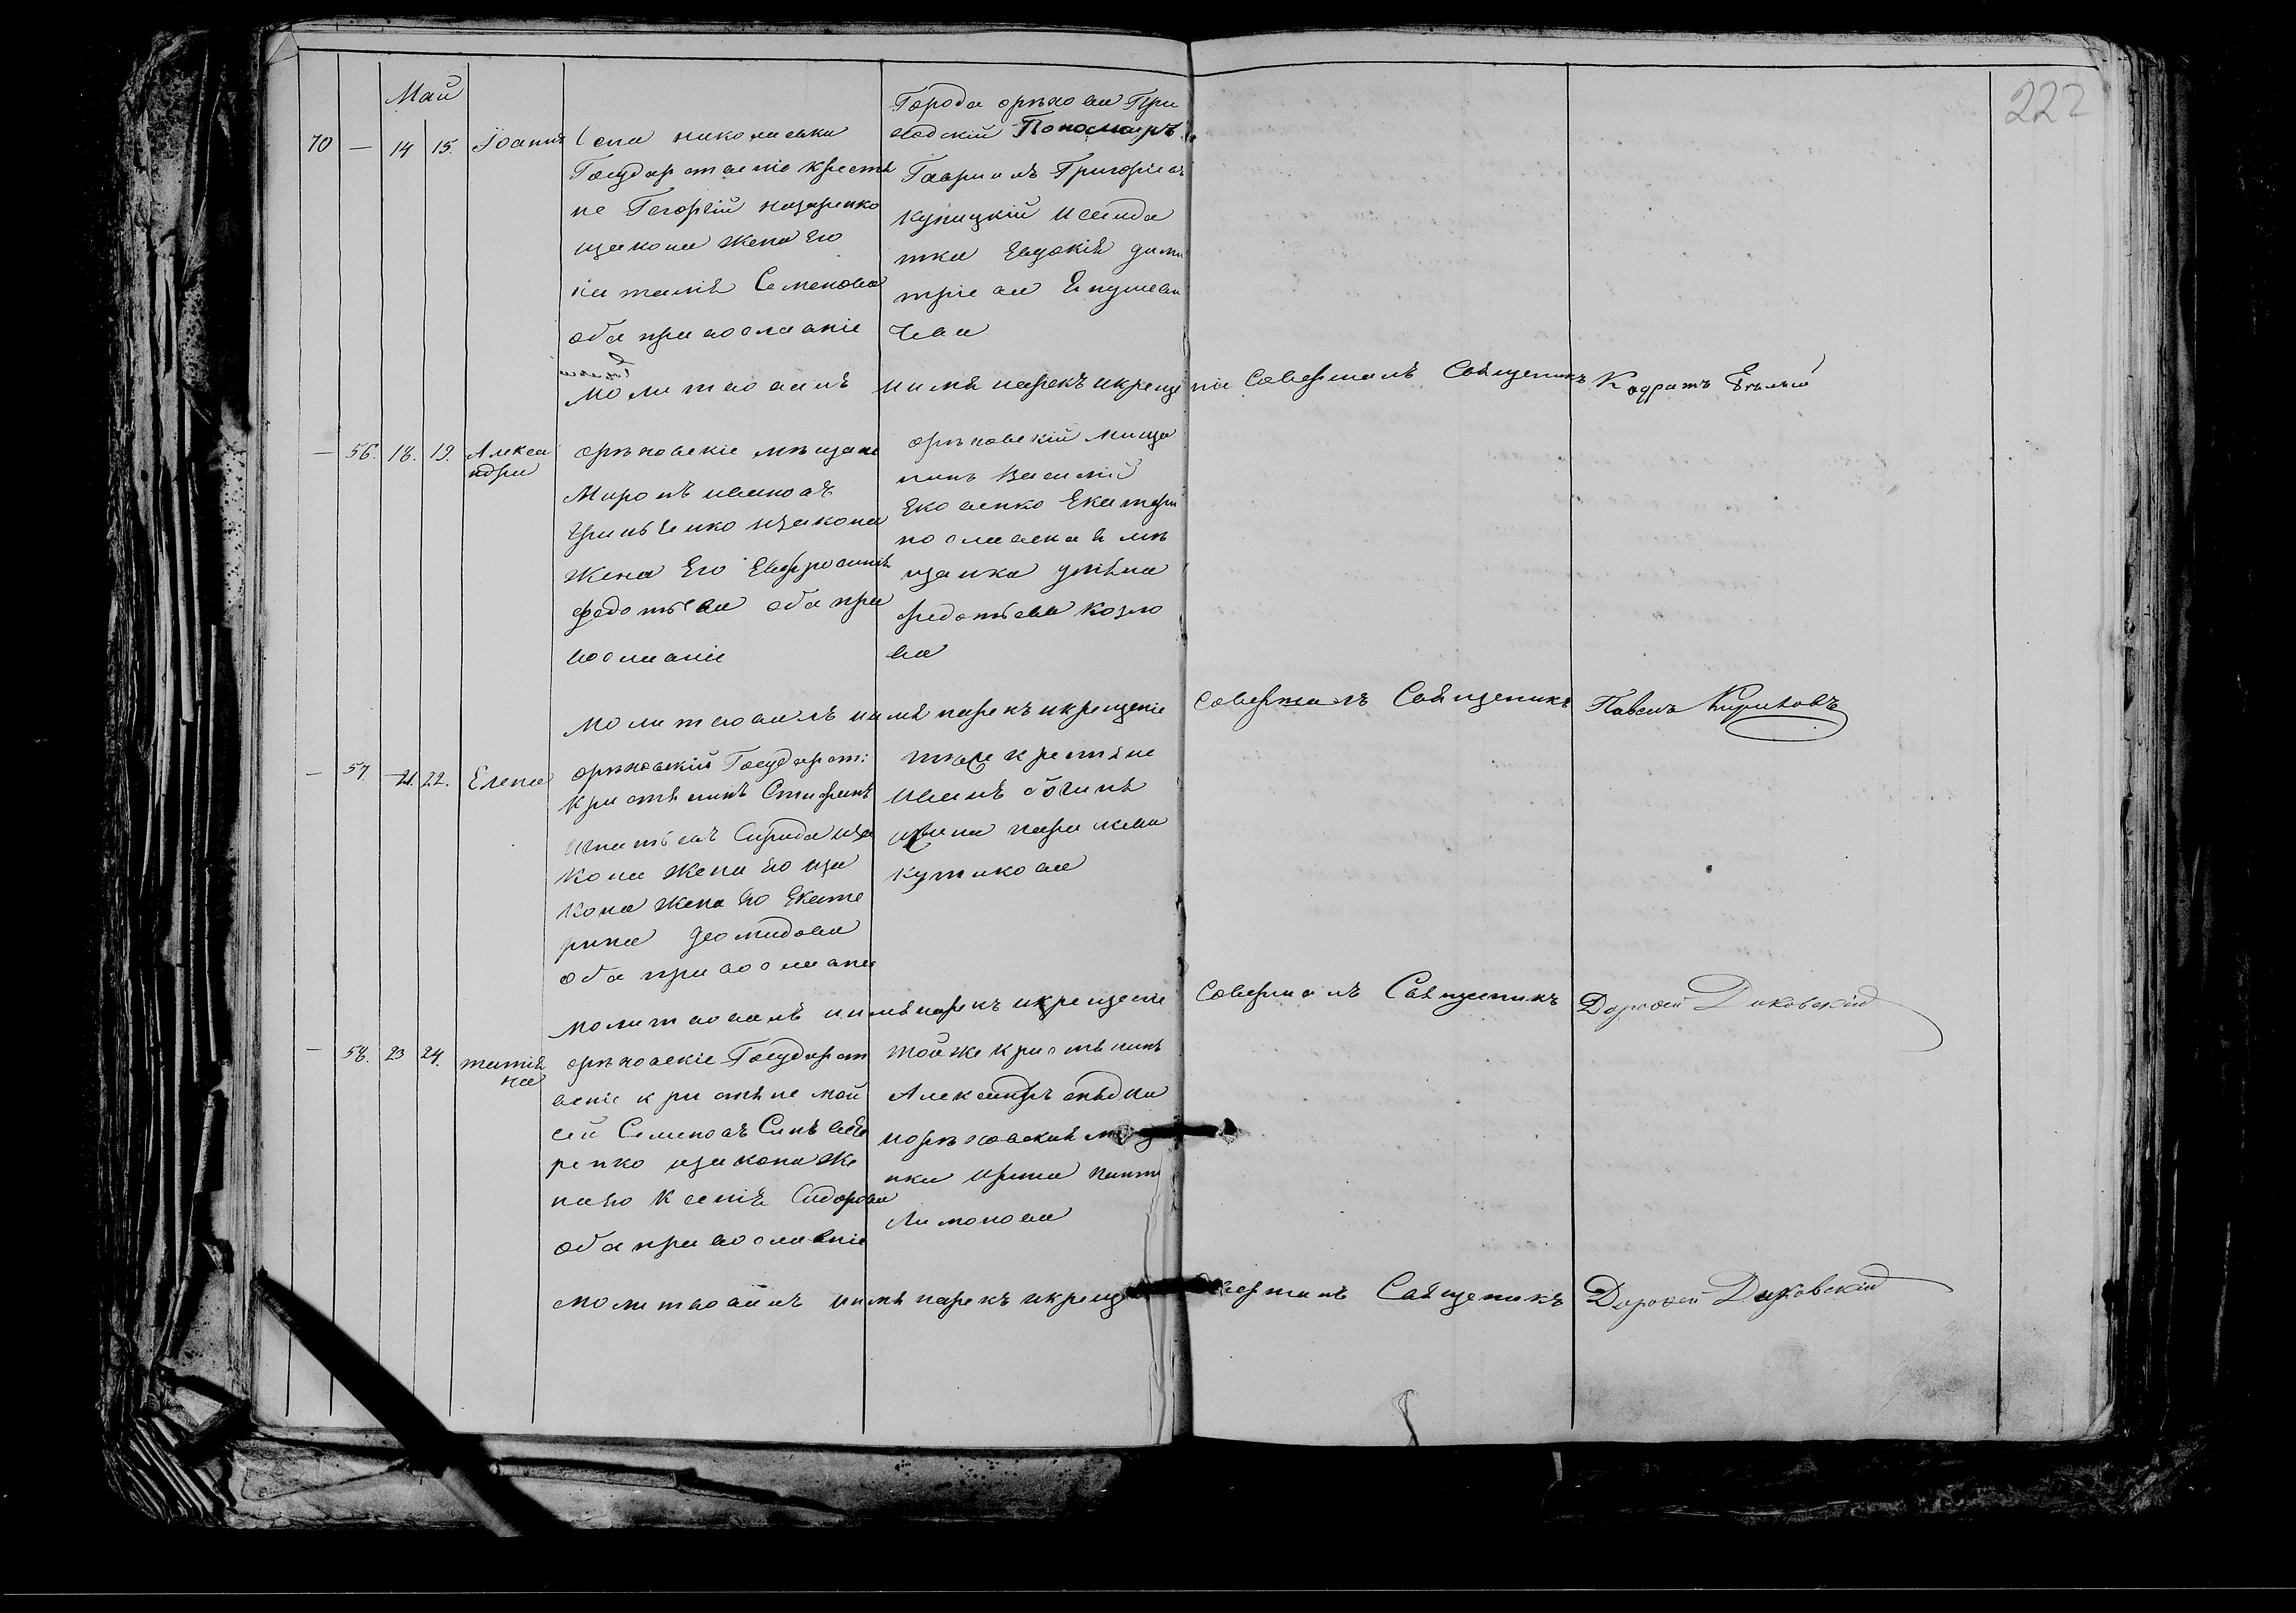 222
Май
70 — 14 15. Іоаннъ
Села николаевки
Государствениіе крестя
не Георгій назаренко
изаконая жена Его
наталія Семенова
оба православніе
Города орѣхова При
ходскій Пономарь
Гавриилъ Григоріевъ
купицкій
тка Евдокія дими
тріева
чева
молитвовалъ иимя нарекъ икрещеніе Совершалъ Священикъ Кодратъ Бѣлый
— 56. 18. 19. Алекса
ндра
орѣховскіе мѣщане
Миронъ ивановъ
гриньченко изакона
жена Его Евфросинія
федотьева оба пра
вославніе
орѣховскій мища
нинъ Василій
Яковенко Екатери
нославская мѣ
щанка улѣяна
федотьева козло
ва
молитвовалъ иимя нарекъ икрещеніе Совершалъ Священикъ Павелъ Кириловъ
— 57. 21. 22. Елена
орѣховскій Государст:
кристянинъ Стифанъ
игнатьевъ Сирида иза
кона жена Его иза
кона жена Его Екате
рина деомидова
оба православніе
тиже крестяне
иванъ
кутикова
молитвовалъ иимя нарекъ икрещеніе Совершалъ Священикъ Дорофей Диковскій
— 58. 23 24. татія
на
орѣховскіе Государст
веніе кристяне мой
сей Семеновъ Синъ
ренко изакона же
на Его Ксенія Сидорова
оба православніе
тойже кристянинъ
Александръ
иорѣховская
нка ирина
Лимонова
молитвовалъ иимя нарекъ икрещ Совершалъ Священикъ Дорофей Диковскій